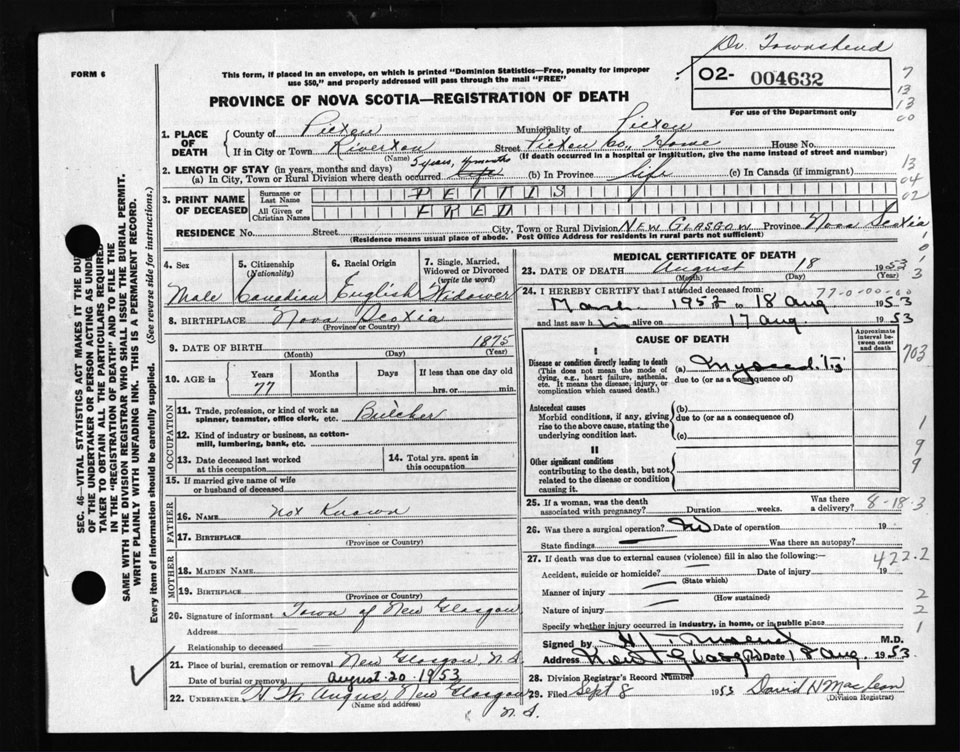 Dr. Townshend
FORM 6
This form, if placed in an envelope, on which is printed "Dominion Statistics—Free, penalty for improper
use $50," and properly addressed will pass through the mail "FREE"
02- 004632
For use of the Department only
PROVINCE OF NOVA SCOTIA—REGISTRATION OF DEATH
7
13
13
00
13
04
02
1. PLACE OF DEATH County of Pictou Municipality of Pictou
If in City or Town Riverton Street Pictou Co. Home House No.
(Name) (If death occurred in a hospital or institution, give the name instead of street and number)
5 years, 4 months
2. LENGTH OF STAY (in years, months and days)
(a) In City, Town or Rural Division where death occurred Life (b) In Province life (c) In Canada (if immigrant)
3. PRINT NAME OF DECEASED Surname or Last Name PETTIS
All Given or Christian Names FRED
RESIDENCE No. Street City, Town or Rural Division NEW GLASGOW Province Nova Scotia
(Residence means usual place of abode. Post Office Address for residents in rural parts not sufficient)
4. Sex
Male
5. Citizenship
(Nationality)
Canadian
6. Racial Origin
English
7. Single, Married, Widowed or Divorced
(write the word)
Widower
8. BIRTHPLACE Nova Scotia
(Province or Country)
9. DATE OF BIRTH 1875
(Month) (Day) (Year)
10. AGE in Years Months Days If less than one day old
77 hrs. or min.
OCCUPATION
11. Trade, profession, or kind of work as
spinner, teamster, office clerk, etc. Butcher
12. Kind of industry or business, as cotton-
mill, lumbering, bank, etc.
13. Date deceased last worked
at this occupation
14. Total yrs. spent in
this occupation
15. If married give name of wife
or husband of deceased
FATHER
16. NAME Not Known
17. BIRTHPLACE
(Province or Country)
MOTHER
18. MAIDEN NAME
19. BIRTHPLACE
(Province or Country)
20. Signature of informant Town of New Glasgow
Address
Relationship to deceased
21. Place of burial, cremation or removal New Glasgow, N.S.
Date of burial or removal August 20 1953
22. UNDERTAKER H. W. Angus, New Glasgow
(Name and address)
N.S.
MEDICAL CERTIFICATE OF DEATH
23. DATE OF DEATH August 18 1953
(Month) (Day)
77-0-00-00
24. I HEREBY CERTIFY that I attended deceased from:
March 1952 to 18 Aug 1953
and last saw him alive on 17 Aug 1953
CAUSE OF DEATH
Approximate interval between onset and death
I
Disease or condition directly leading to death
(This does not mean the mode of
dying, e.g., heart failure, asthenia,
etc. It means the disease, injury, or
complication which caused death.)
(a) Myocarditis
due to (or as a consequence of)
703
Antecedent causes
Morbid conditions, if any, giving
rise to the above cause, stating the
underlying condition last.
(b)
due to (or as a consequence of)
(c)
II
Other significant conditions
contributing to the death, but not
related to the disease or condition
causing it.
1
9
9
25. If a woman, was the death
associated with pregnancy? Duration weeks. Was there a delivery?
8-18-3
26. Was there a surgical operation? No Date of operation 19
State findings Was there an autopsy?
27. If death was due to external causes (violence) fill in also the following:—
422.2
Accident, suicide or homicide? Date of injury 19
(State which)
Manner of injury
(How sustained)
Nature of injury
2
2
1
Specify whether injury occurred in industry, in home, or in public place
Signed by M.D.
Address New Glasgow Date 18 Aug. 1953
28. Division Registrar's Record Number
29. Filed Sept 8 1953 David H MacLean
(Division Registrar)
SEC. 46—VITAL STATISTICS ACT MAKES IT THE DU
OF THE UNDERTAKER OR PERSON ACTING AS UNDE
TAKER TO OBTAIN ALL THE PARTICULARS REQUIRED
IN THE "REGISTRATION OF DEATH" AND TO FILE THE
SAME WITH THE DIVISION REGISTRAR WHO SHALL ISSUE THE BURIAL PERMIT.
WRITE PLAINLY WITH UNFADING INK. THIS IS A PERMANENT RECORD.
Every item of information should be carefully supplied. (See reverse side for instructions.)